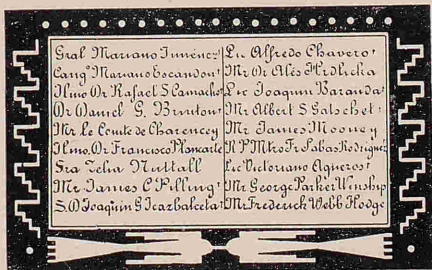 Gral Mariano Jiménez
Cango Mariano Escandon
Ilmo. Dr Rafael S Camacho
Dr Daniel G. Brinton
Mr Le Comte de Charencey
Ilmo. Dr Francisco Plancarte
Sra Zelia Nuttall
Mr James C Pilling
S. D Joaquin G Icazbalceta
Lic Alfredo Chavero
Mr Dr Alés Hrdlicka
Lic Joaquin Baranda
Mr Albert S Gatschet
Mr James Mooney
R P Mtro Fr Sabas Rodriguez
Lic Victoriano Agueros
Mr George Parker Winship
Mr Frederick Webb Hodge